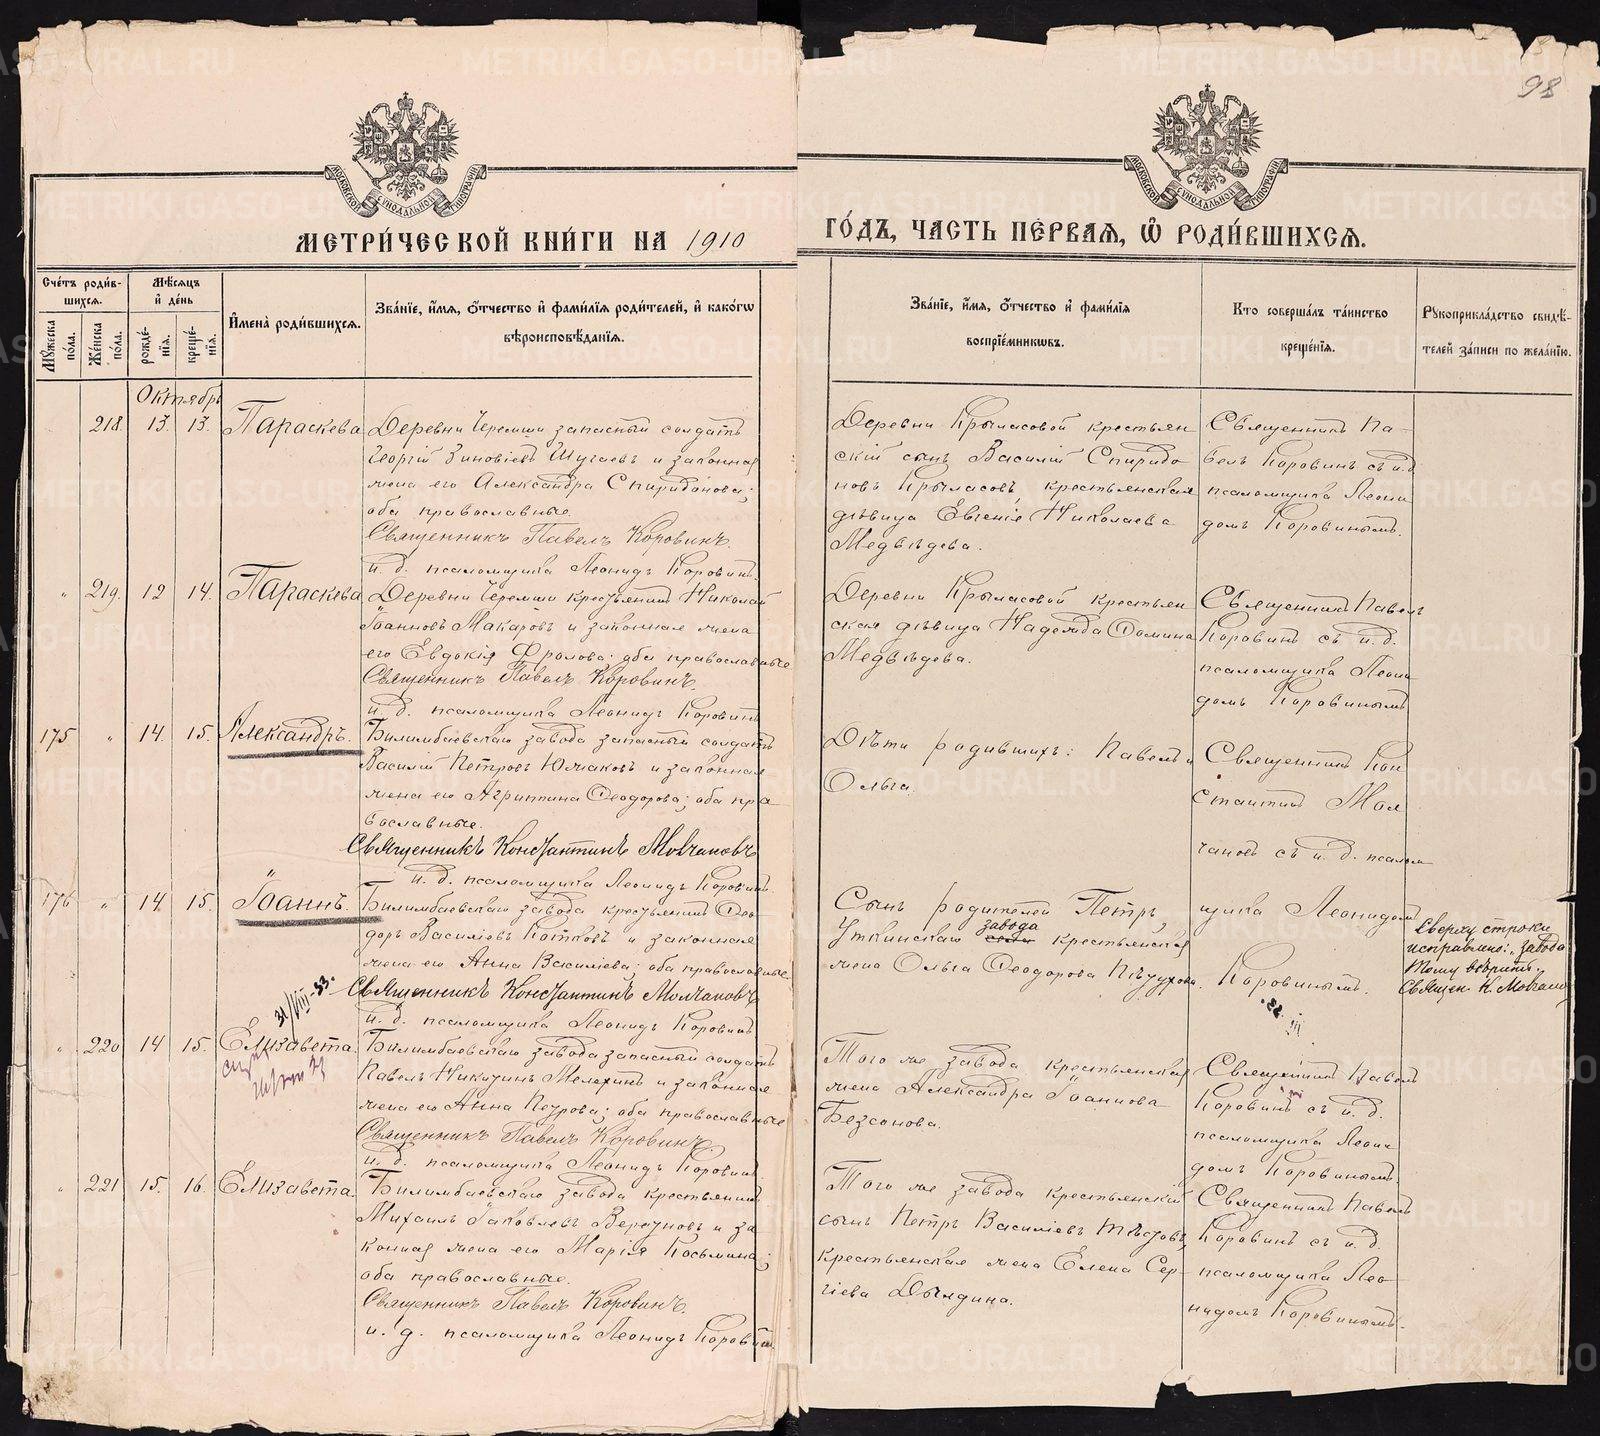 98
МОСКОВСКОЙ СѴНОДАЛЬНОЙ ТИПОГРАФІИ
МОСКОВСКОЙ СѴНОДАЛЬНОЙ ТИПОГРАФІИ
МЕТРИ́ЧЕСКОЙ КНИ́ГИ НА 1910
ГО́ДЪ, ЧАСТЬ ПЕ́РВАЯ, Ѡ҆ РОДИ́ВШИХСЯ.
Сче́тъ роди́в-
шихся.
Мѣ́сяцъ
и҆ де́нь
Мꙋ́жеска
по́ла.
Же́нска
по́ла.
рожде́-
нїя.
креще́-
нїя.
И҆мена̀ роди́вшихся.
Зва́нїе, и҆́мя, ѻ҆́тчество и҆ фами́лїя роди́телей, и҆ како́гѡ
вѣроисповѣ́данїя.
Зва́нїе, и҆́мя, ѻ҆́тчество и҆ фами́лїя
воспрїе́мникѡвъ.
Кто соверша́лъ та́инство
креще́нїя.
Рꙋкоприкла́дство свидѣ́-
телей за́писи по жела́нїю.
Октябрь
218 13. 13. Параскева
Деревни Черемши запасный солдатъ
Георгій Зиновіевъ Шугаевъ и законная
жена его Александра Спиридонова;
оба православные.
Священникъ Павелъ Коровинъ.
и. д. псаломщика Леонидъ Коровинъ.
Деревни Крыласовой крестьян
скій сынъ Василій Спиридо
новъ Крыласовъ, крестьянская
дѣвица Евгенія Николаева
Медвѣдева.
Священникъ Па-
велъ Коровинъ съ и. д
псаломщика Леони
домъ Коровинымъ.
" 219. 12 14. Параскева
Деревни Черемши крестьянинъ Николай
Іоанновъ Макаровъ и законная жена
его Евдокія Фролова; оба православные
Священникъ Павелъ Коровинъ.
и. д. псаломщика Леонидъ Коровинъ
Деревни Крыласовой крестьян
ская дѣвица Надежда Ѳомина
Медвѣдева.
Священникъ Павелъ
Коровинъ съ и. д.
псаломщика Леони
домъ Коровинымъ
175 " 14. 15. Александръ.
Билимбаевскаго завода запасный солдатъ
Василій Петровъ Юлмаковъ и законная
жена его Агриппина Ѳеодорова; оба пра
вославные.
Священникъ Константинъ Молчановъ
и. д. псаломщика Леонидъ Коровинъ.
Дѣти родившихъ: Павелъ и
Ольга.
Священникъ Кон
стантинъ Мол
чановъ съ и. д. псалом
176 " 14. 15. Іоаннъ.
Билимбаевскаго завода крестьянинъ Ѳео-
доръ Василіевъ Котковъ и законная
жена его Анна Василіева; оба православные.
Священникъ Константинъ Молчановъ
и. д. псаломщика Леонидъ Коровинъ
Сынъ родителей Петръ,
завода
Уткинскаго села крестьянская
жена Ольга Ѳеодорова
щика Леонидомъ
Коровинымъ.
Сверху строки
исправлено: "завода
тому вѣрить.
Священ. К. Молчановъ
31/VIII-53.
" 220 14 15. Елизавета.
Билимбаевскаго завода запасный солдатъ
Павелъ Никитинъ Мелехинъ и законная
жена его Анна Петрова; оба православные
Священникъ Павелъ Коровинъ
и. д. псаломщика Леонидъ Коровинъ
Того же завода крестьянская
жена Александра Іоаннова
Безсонова.
Священникъ Павелъ
Коровинъ съ и. д.
псаломщика Леони
домъ Коровинымъ.
" 221 15. 16. Елизавета.
Билимбаевскаго завода крестьянинъ
Михаилъ Іаковлевъ Веретновъ и за
конная жена его Марія Косьмина;
оба православные.
Священникъ Павелъ Коровинъ.
и. д. псаломщика Леонидъ Коровинъ
Того же завода крестьянскій
сынъ Петръ Василіевъ Тѣстовъ,
крестьянская жена Елена Сер-
гіева Дылдина.
Священникъ Павелъ
Коровинъ съ и. д.
псаломщика Лео
нидомъ Коровинымъ.
METRIKI.GASO-URAL.RU